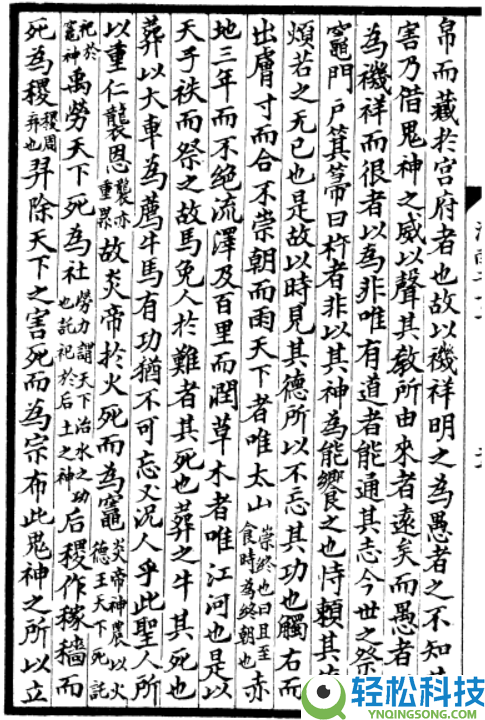 帛而藏於宫府者也故以禨祥明之為愚者之不知
害乃借鬼神之威以聲其教所由來者遠矣而愚者
為禨祥而很者以為非唯有道者能通其志今世之祭
竈門戶箕箒臼杵者非以其神為能饗之也恃頼其
煩若之无已也是故以時見其德所以不忘其功也觸右而
出膚寸而合不崇朝而雨天下者唯太山崇終也日旦至食時為終朝也赤
地三年而不絕流澤及百里而潤草木者唯江河也是以
天子袟而祭之故馬免人於難者其死也葬之牛其死也
葬以大車為薦牛馬有功猶不可忘又况人乎此聖人所
以重仁襲恩襲亦重累故炎帝扵火死而為竈炎帝神農以火德王天下死託
祀於竈神禹勞天下死為社勞力謂天下治水之功也託祀於后土之神后稷作稼穡而
死為稷稷周弃也羿除天下之害死而為宗布此鬼神之所以立
轻松科技
YNQINGSONG.COM